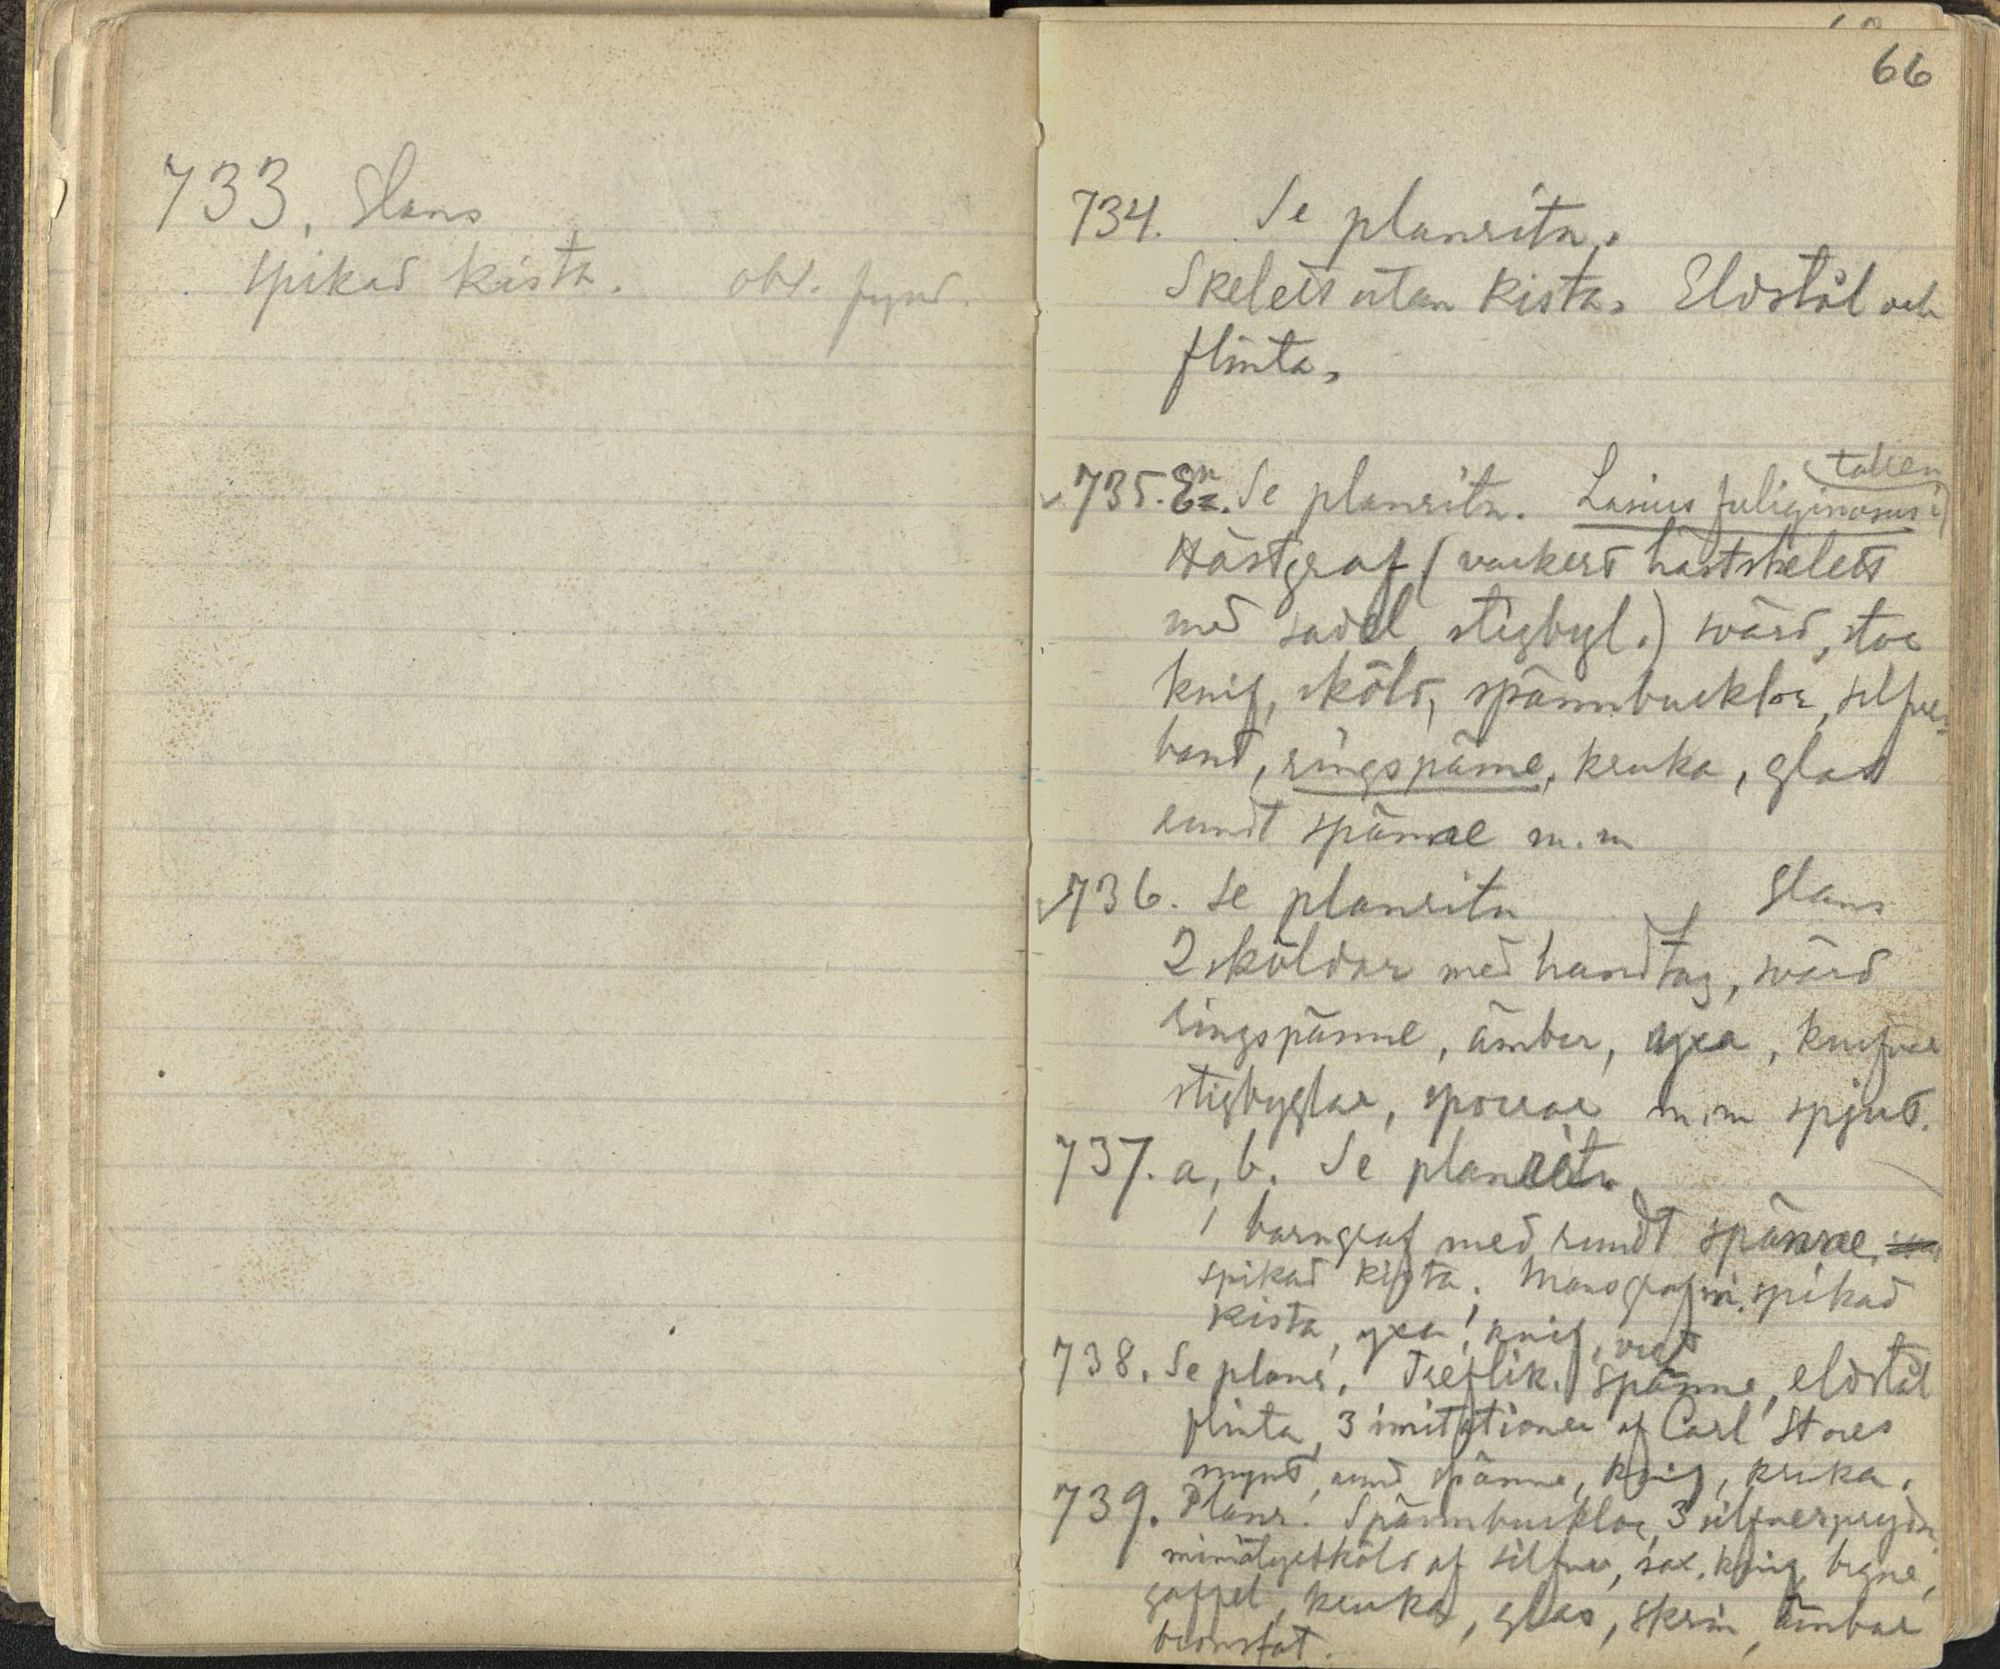 733. Glans
spikad kista. obl. fynd.
66
734. Se planritn.
Skelett utan kista. Eldstål och
flinta.
tallen
735. En. Se planritn. Lasius fuliginosus i
Hästgraf (vackert hästskelett
med sadel, stigbygl.) svärd, stor
knif, sköld, spännbucklor, silfver-
band, ringspänne, kruka, glas
rundt spänne m.m
736. Se planritn Glans
2 sköldar med handtag, svärd
ringspänne, ämbar, yxa, knifvar
stigbyglar, sporrar m.m spjut.
737. a, b. Se planritn
1 barngraf med rundt spänne,
spikad kista. Mansgraf m. spikad
kista, yxa, knif,
738. Se planr. Treflik. spänne, eldstål
flinta, 3 imitationer af Carl Stores
mynt, rund spänne, knif, kruka.
739. Planr. Spännbucklor, 3 silfverprydn.
miniatyrsköld af silfver, sax, knif, bryne,
gaffel, kruka, glas, skrin, ämbar
bronsfat.